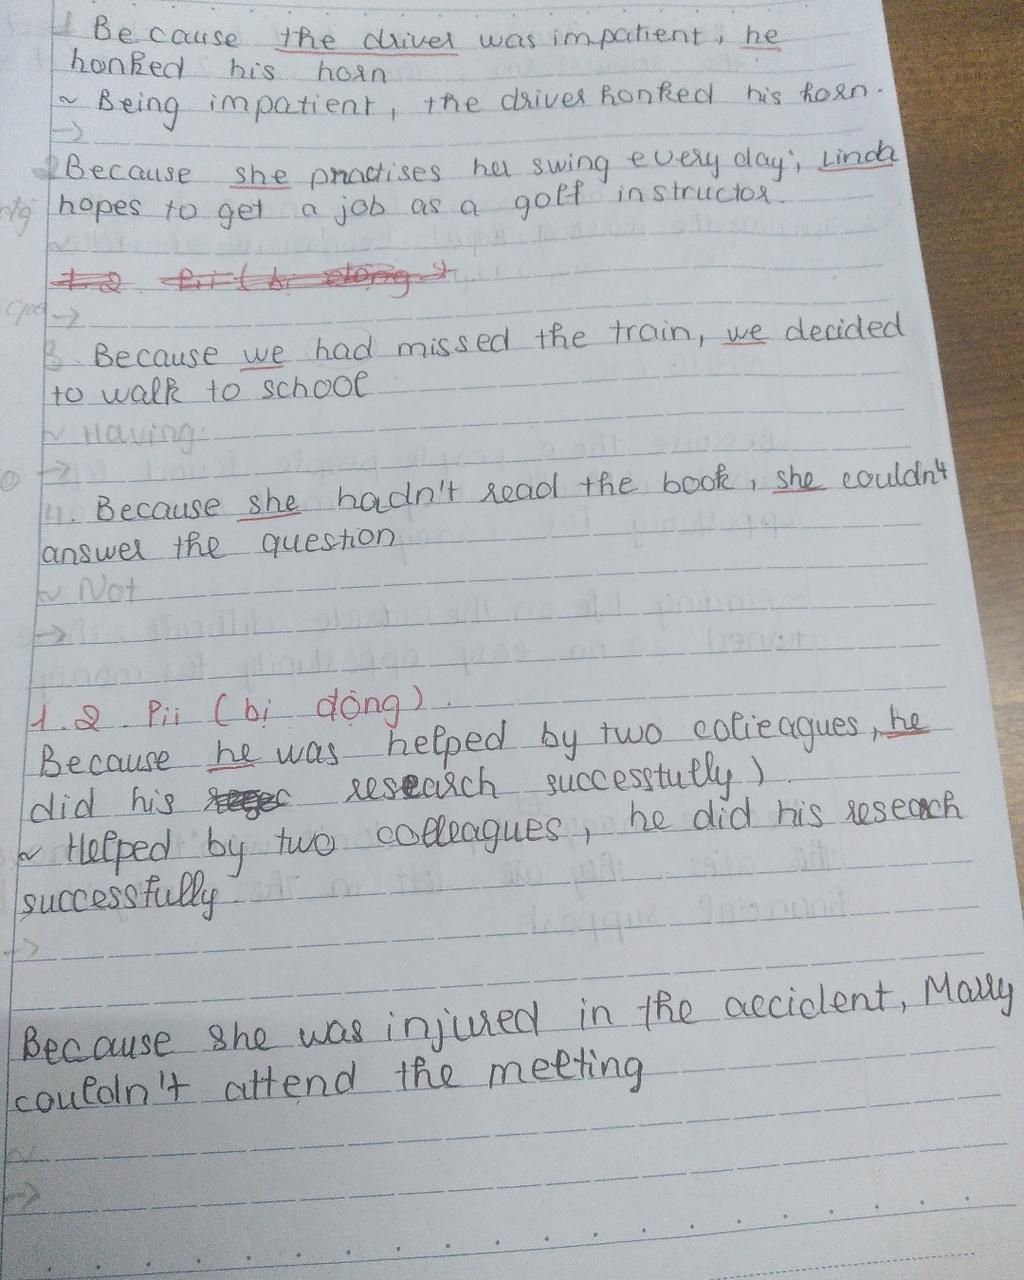 1. Because the driver was impatient, he
honked his horn
~ Being impatient, the driver honked his horn.
→
2 Because she practises her swing every day, Linda
hopes to get a job as a golf instructor.
~
1.2 Pii (bị động)
→
3. Because we had missed the train, we decided
to walk to school
~ Having
→
4. Because she hadn't read the book, she couldn't
answer the question
~ Not
→
1.2 Pii (bị động).
Because he was helped by two colieagues, he
did his research successfully)
~ Helped by two colleagues, he did his reseach
successfully
→
Because she was injured in the accident, Marry
couldn't attend the meeting
~
→